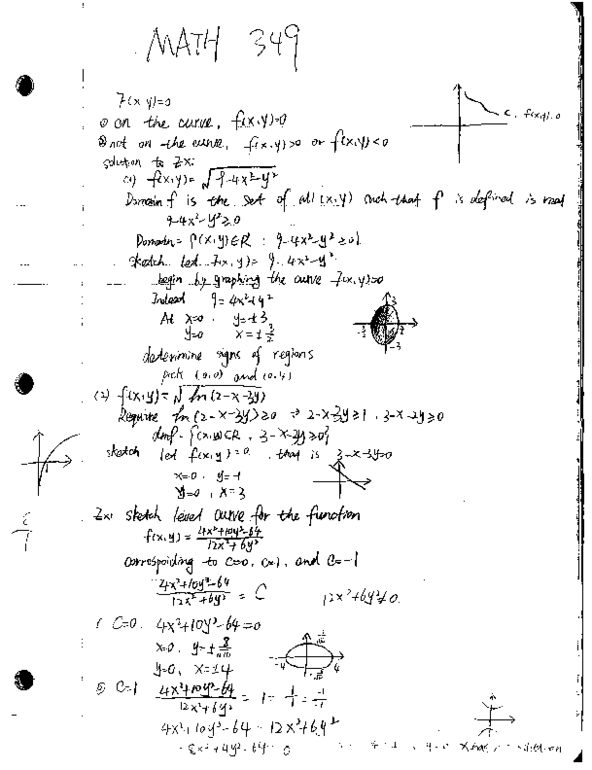 MATH 349
F(x,y)=0
① on the curve, f(x,y)=0
② not on the curve, f(x,y)>0 or f(x,y)<0
C. f(x,y)=0
solution to Ex:
(1) f(x,y)=√9-4x²-y²
Domain f is the set of all (x,y) such that f is defined is real
9-4x²-y²≥0
Domain={(x,y)∈R : 9-4x²-y²≥0}
sketch let F(x,y)= 9-4x²-y²
begin by graphing the curve F(x,y)=0
Indeed 9=4x²+y²
At x=0, y=±3
y=0 x=±3/2
determine signs of regions
pick (0,0) and (0,4)
(2) f(x,y)=√ln(2-x-3y)
Require ln(2-x-3y)≥0 ⇒ 2-x-3y≥1
sketch let f(x,y)=0, that is 3-x-3y=0
x=0, y=-1
y=0, x=3
Ex: sketch level curve for the function
f(x,y)= 4x²+10y²-64 / 12x²+6y²
corresponding to c=0, c=1, and c=-1
4x²+10y²-64 / 12x²+6y² = C 12x²+6y²≠0.
C=0. 4x²+10y²-64=0
x=0, y=± 8/√10
y=0, x=±4
-4 4
C=1 4x²+10y²-64 / 12x²+6y² = 1 = 1/1 = -1/-1
4x²+10y²-64 = 12x²+6y²